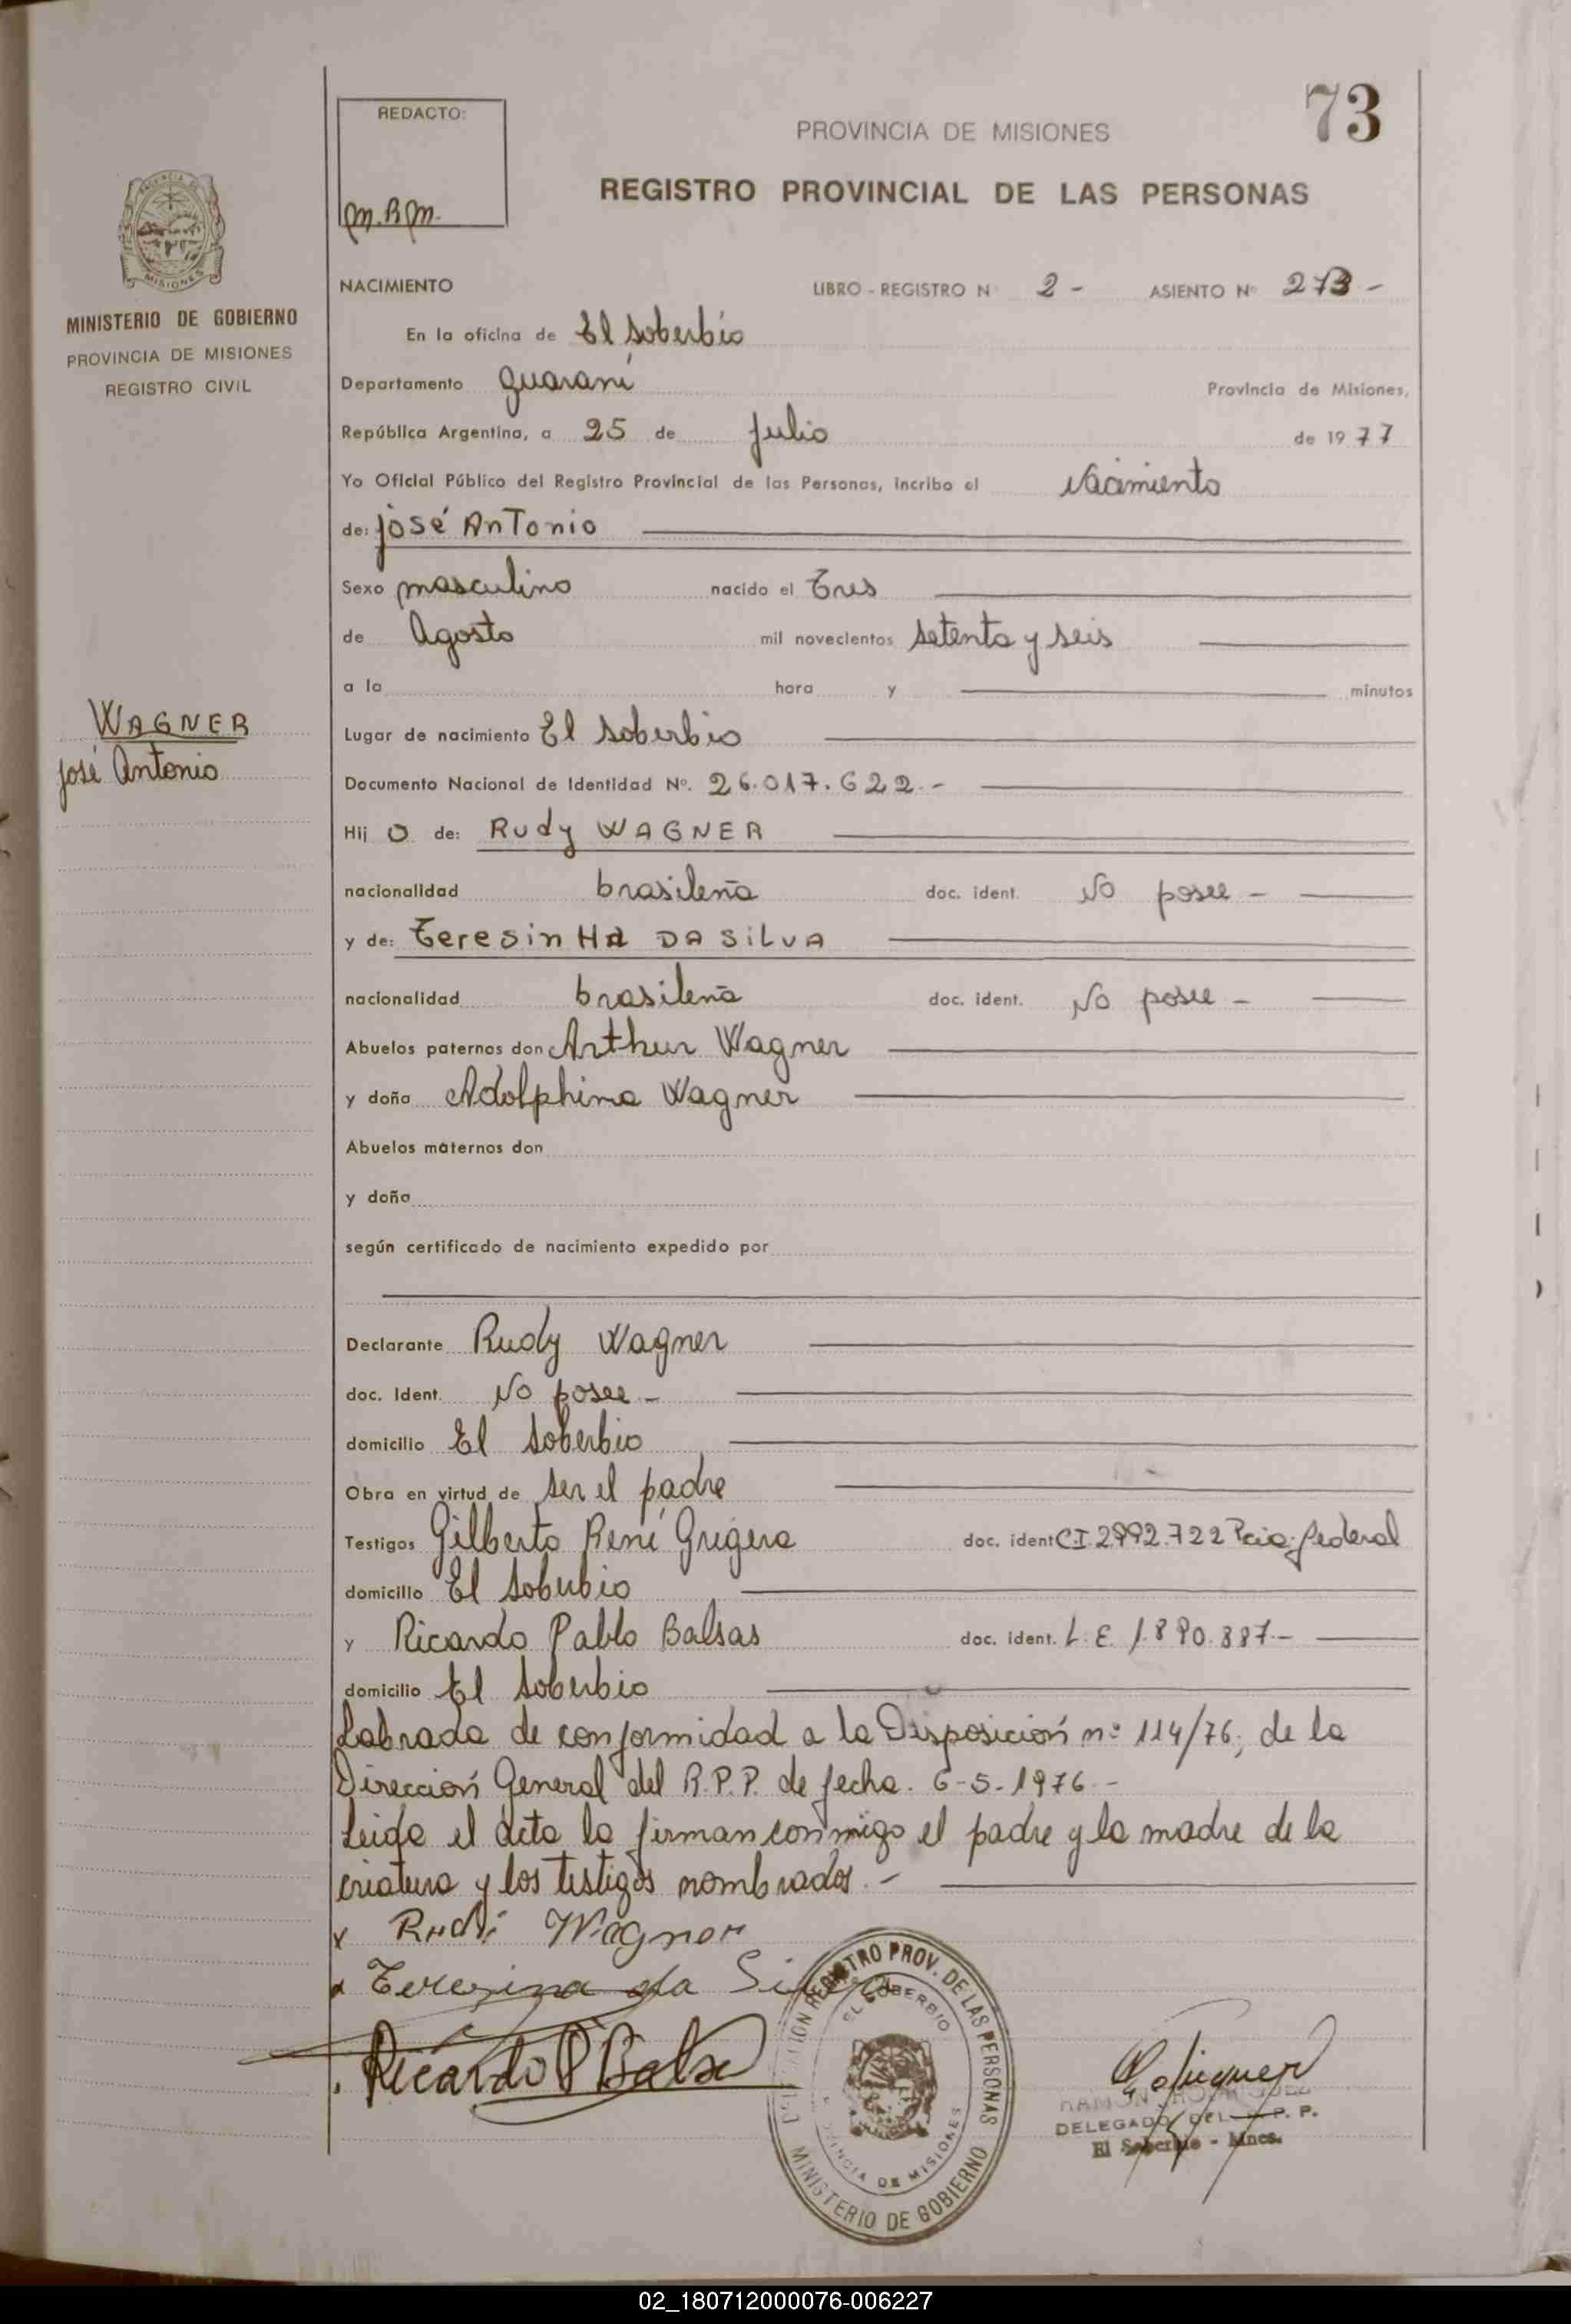 73
REDACTO:
M.B.M.
PROVINCIA DE MISIONES
REGISTRO PROVINCIAL DE LAS PERSONAS
PROVINCIA DE
MISIONES
MINISTERIO DE GOBIERNO
PROVINCIA DE MISIONES
REGISTRO CIVIL
NACIMIENTO LIBRO - REGISTRO N° 2 - ASIENTO N° 273 -
En la oficina de El Soberbio
Departamento Guaraní Provincia de Misiones,
República Argentina, a 25 de Julio de 1977
Yo Oficial Público del Registro Provincial de las Personas, incribo el Nacimiento
de: José AnTonio
Sexo masculino nacido el Tres
de Agosto mil novecientos setenta y seis
a la hora y minutos
WAGNER
José Antonio
Lugar de nacimiento El Soberbio
Documento Nacional de Identidad N°. 26.017.622.-
Hij o de: Rudy WAGNER
nacionalidad brasileña doc. ident. No posee -
y de: Teresinha DA SILVA
nacionalidad brasileña doc. ident. No posee -
Abuelos paternos don Arthur Wagner
y doña Adolphina Wagner
Abuelos maternos don
y doña
según certificado de nacimiento expedido por
Declarante Rudy Wagner
doc. Ident. No posee -
domicilio El Soberbio
Obra en virtud de ser el padre
Testigos Gilberto René Grigera doc. ident C.I. 2992.722 Pcia. Federal
domicilio El Soberbio
y Ricardo Pablo Balsas doc. ident. L. E. 1.890.887.-
domicilio El Soberbio
Labrada de conformidad a la Disposición n° 114/76, de la
Dirección General del R.P.P. de fecha. 6-5-1976.-
Leida el acta la firman conmigo el padre y la madre de la
criatura y los testigos nombrados.-
x Rudi Wagner
x Teresina da Silva
Ricardo P Balsa
REGISTRO PROV. DE LAS PERSONAS
EL SOBERBIO
PROVINCIA DE MISIONES
MINISTERIO DE GOBIERNO
RAMON RODRIGUEZ
DELEGADO DEL R. P. P.
El Soberbio - Mnes.
02_180712000076-006227